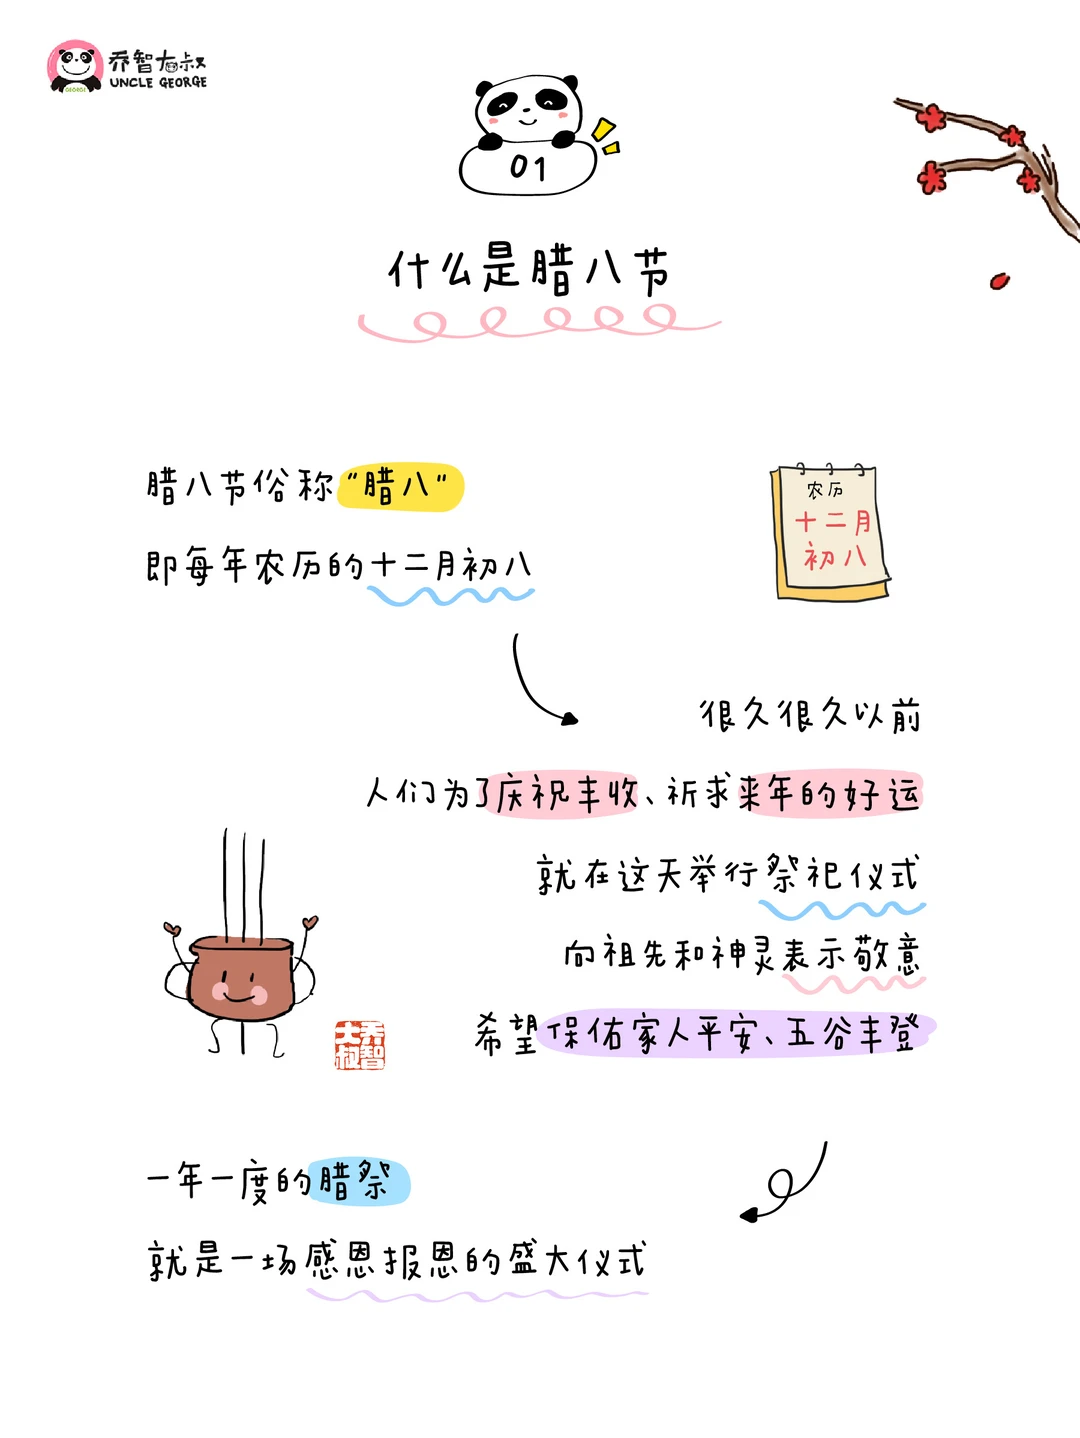 乔智大叔
UNCLE GEORGE
GEORGE
01
什么是腊八节
腊八节俗称"腊八"
即每年农历的十二月初八
农历
十二月
初八
很久很久以前
人们为了庆祝丰收、祈求来年的好运
就在这天举行祭祀仪式
向祖先和神灵表示敬意
希望保佑家人平安、五谷丰登
乔智大叔
一年一度的腊祭
就是一场感恩报恩的盛大仪式